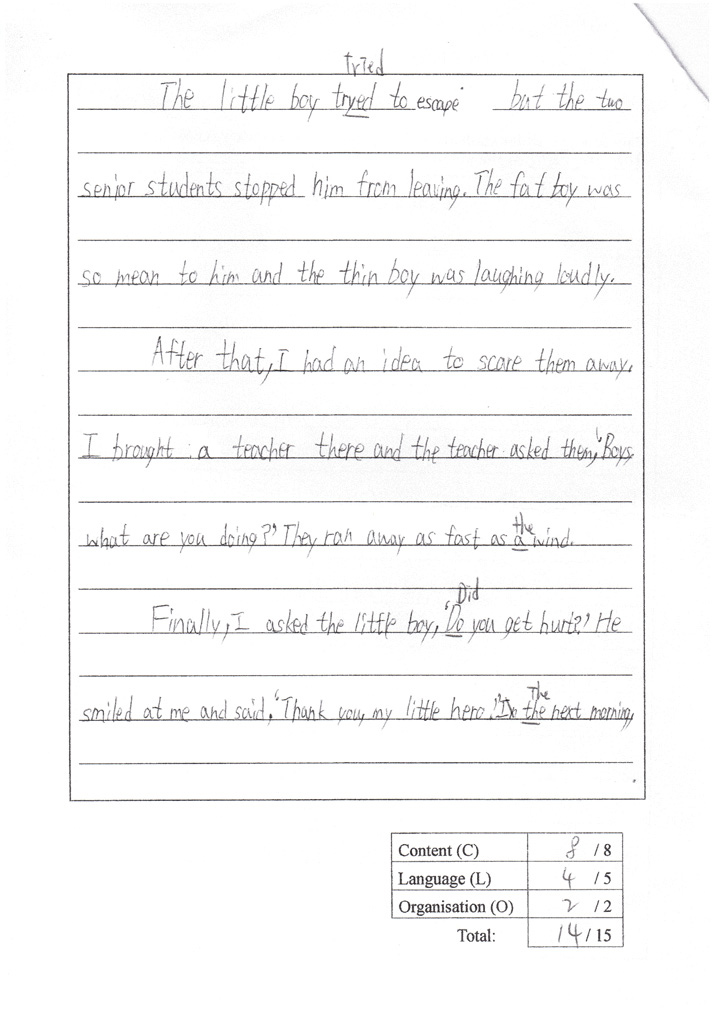 tried
The little boy tryed to escape but the two
senior students stopped him from leaving. The fat boy was
so mean to him and the thin boy was laughing loudly.
After that, I had an idea to scare them away.
I brought a teacher there and the teacher asked them, 'Boys,
the
what are you doing?' They ran away as fast as a wind.
Did
Finally, I asked the little boy, 'Do you get hurt?' He
The
smiled at me and said, 'Thank you, my little hero.' In the next morning,
Content (C) 8 / 8
Language (L) 4 / 5
Organisation (O) 2 / 2
Total: 14 / 15